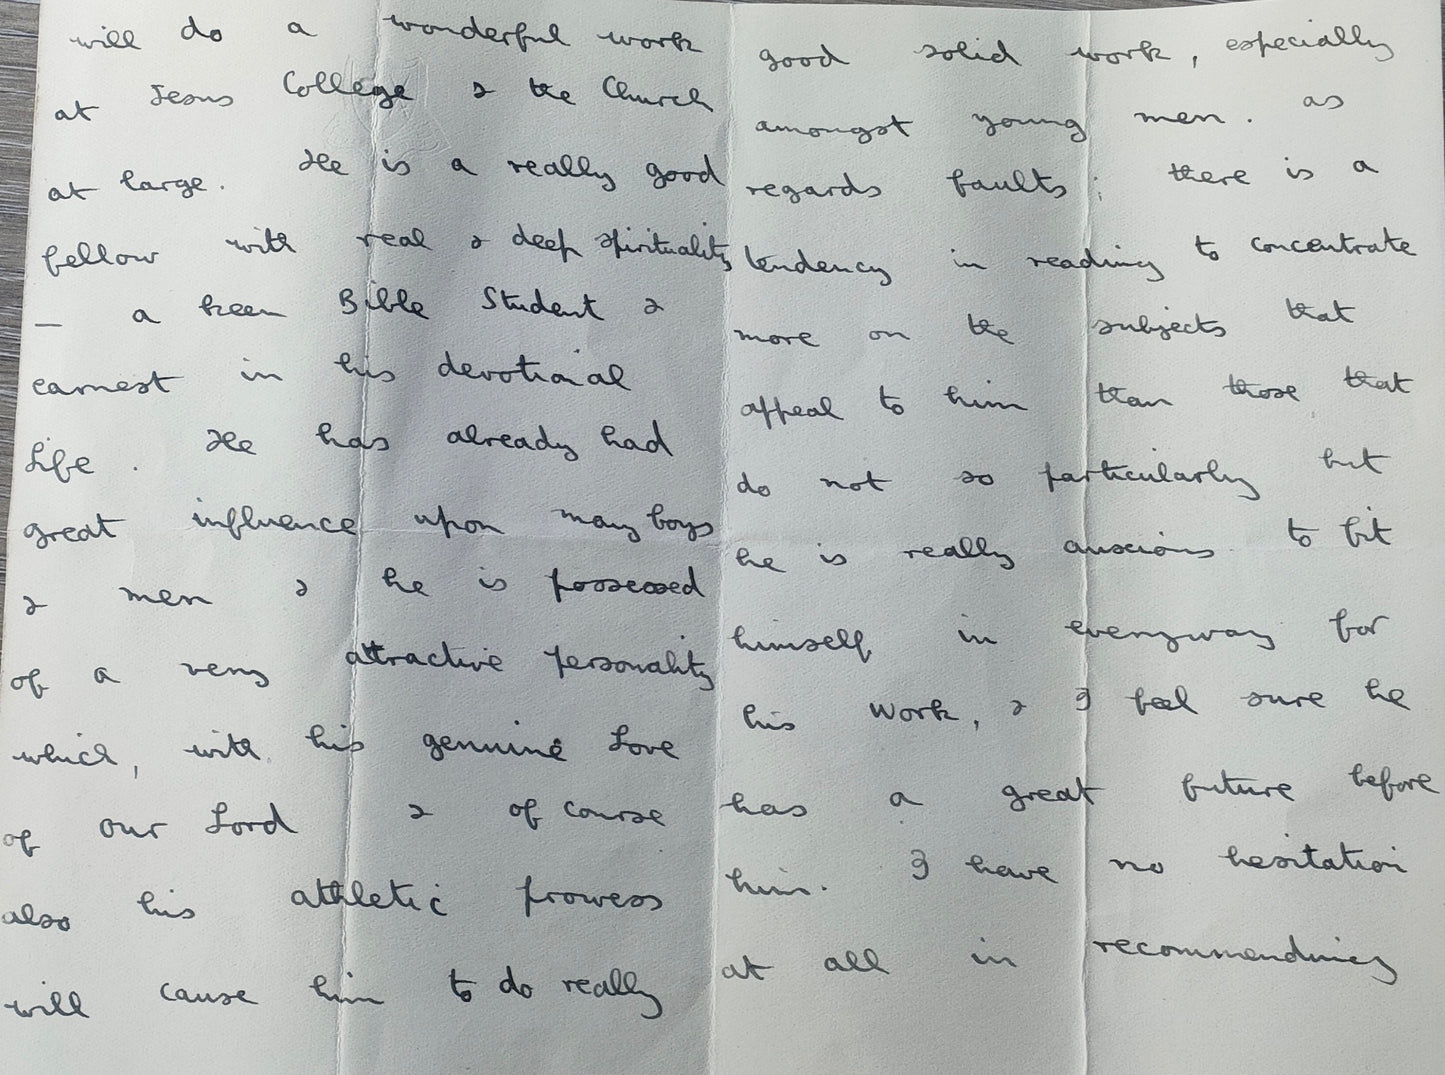 will do a wonderful work
at Jesus College & the Church
at large. He is a really good
fellow with real & deep spirituality
— a keen Bible Student &
earnest in his devotional
life. He has already had
great influence upon many boys
& men & he is possessed
of a very attractive personality
which, with his genuine love
of our Lord & of course
also his athletic prowess
will cause him to do really
good solid work, especially
amongst young men. as
regards faults; there is a
tendency in reading to concentrate
more on the subjects that
appeal to him than those that
do not so particularly but
he is really anxious to fit
himself in everyway for
his work, & I feel sure he
has a great future before
him. I have no hesitation
at all in recommending